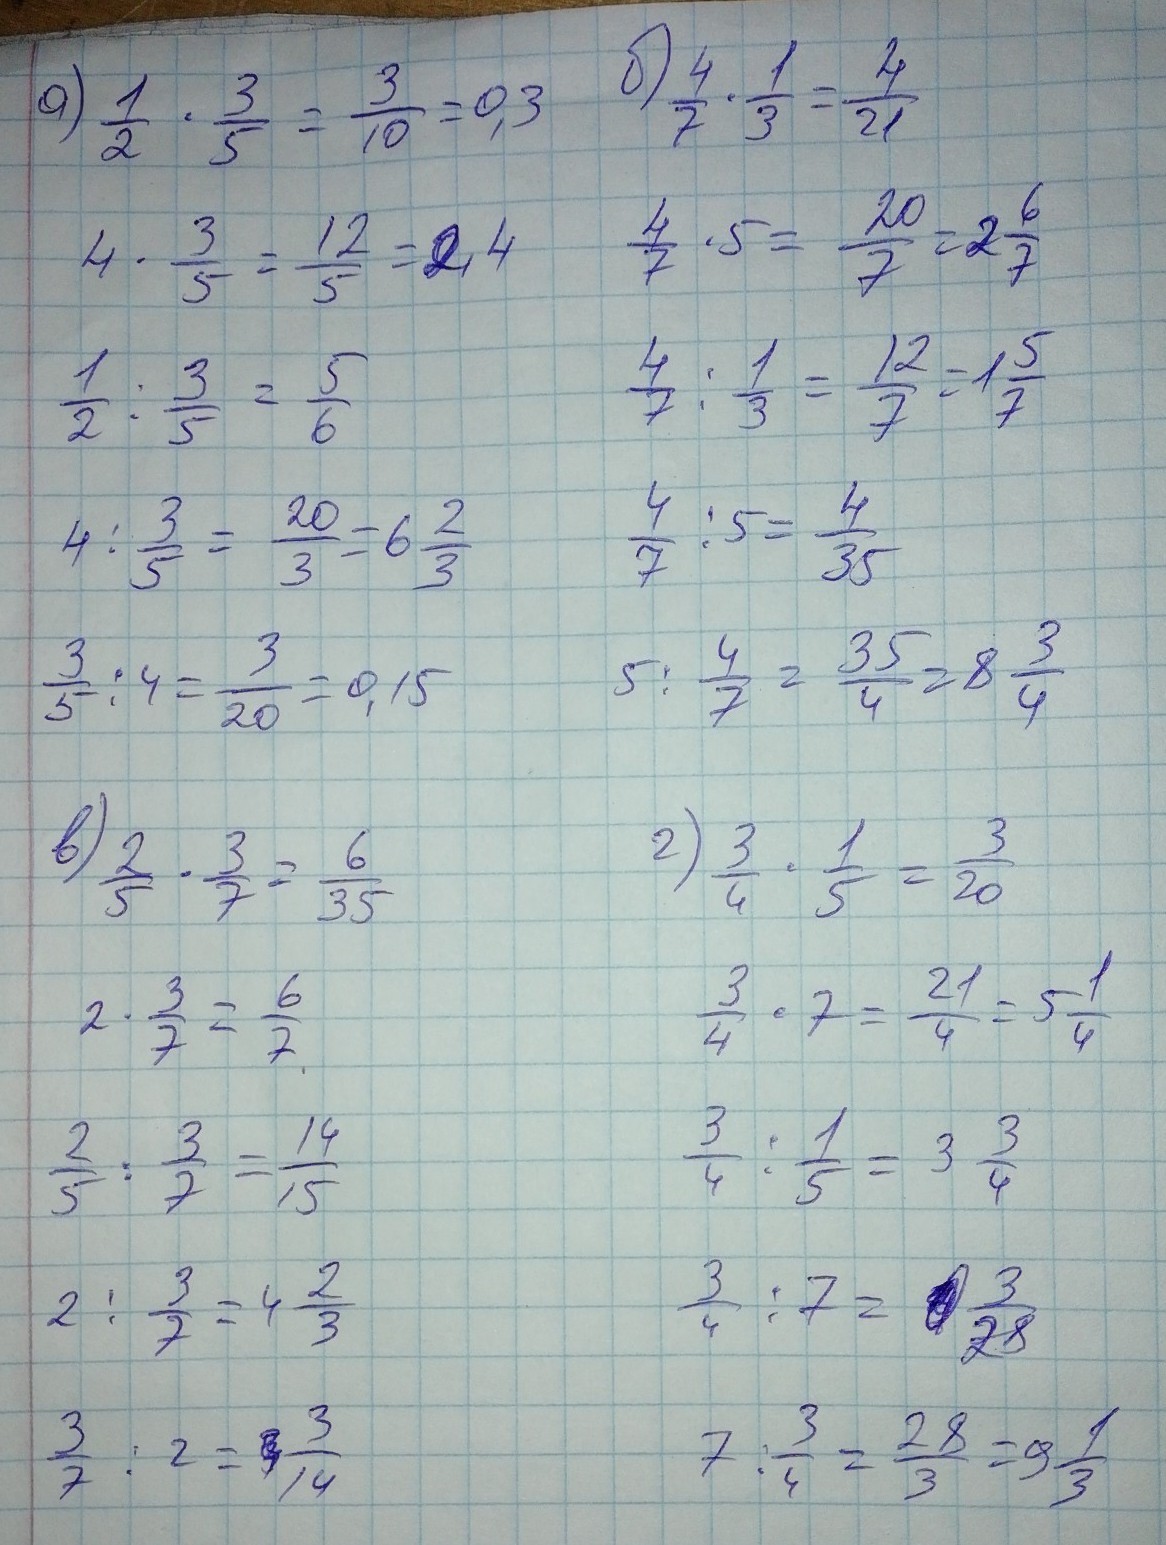 а) 1/2 · 3/5 = 3/10 = 0,3
4 · 3/5 = 12/5 = 2,4
1/2 : 3/5 = 5/6
4 : 3/5 = 20/3 = 6 2/3
3/5 : 4 = 3/20 = 0,15
б) 4/7 · 1/3 = 4/21
4/7 · 5 = 20/7 = 2 6/7
4/7 : 1/3 = 12/7 = 1 5/7
4/7 : 5 = 4/35
5 : 4/7 = 35/4 = 8 3/4
в) 2/5 · 3/7 = 6/35
2 · 3/7 = 6/7
2/5 : 3/7 = 14/15
2 : 3/7 = 4 2/3
3/7 : 2 = 3/14
г) 3/4 · 1/5 = 3/20
3/4 · 7 = 21/4 = 5 1/4
3/4 : 1/5 = 3 3/4
3/4 : 7 = 3/28
7 : 3/4 = 28/3 = 9 1/3